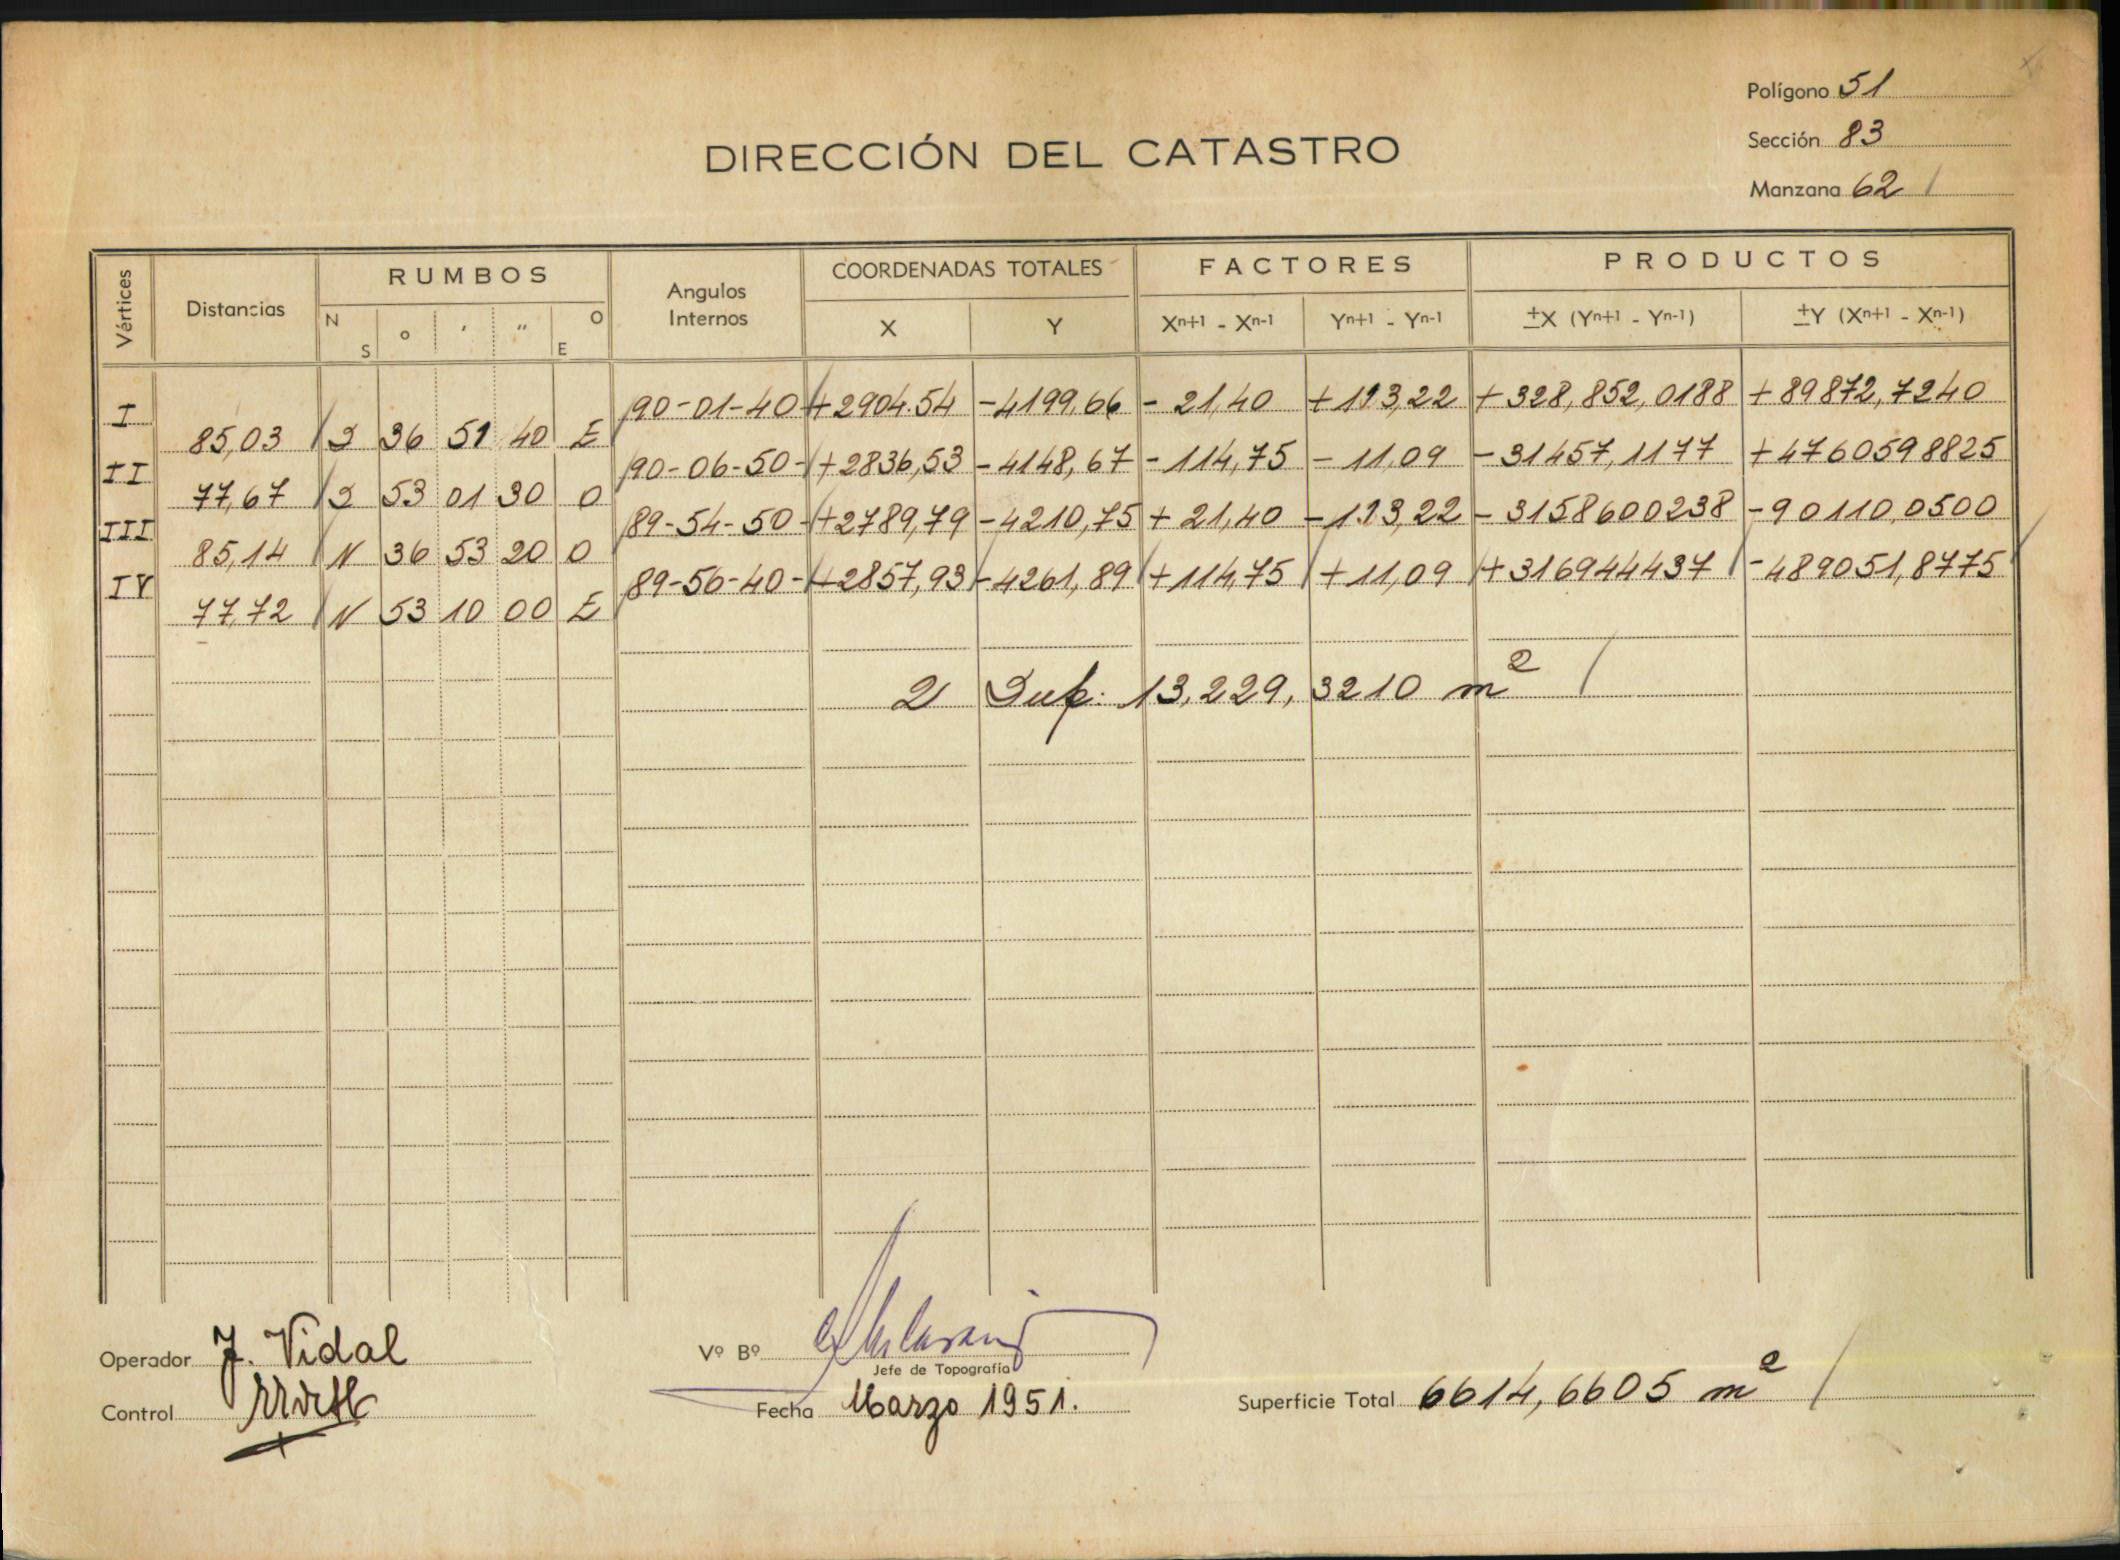 Polígono 51
Sección 83
Manzana 62 /
DIRECCIÓN DEL CATASTRO
Vértices Distancias RUMBOS Angulos Internos COORDENADAS TOTALES FACTORES PRODUCTOS
N S ° ′ ″ O E X Y Xn+1 - Xn-1 Yn+1 - Yn-1 ±X (Yn+1 - Yn-1) ±Y (Xn+1 - Xn-1)
I 90-01-40 +2904.54 -4199,66 - 21,40 +113,22 +328,852,0188 +89872,7240
85,03 S 36 51 40 E
II 90-06-50- +2836,53 -4148,67 -114,75 -11,09 -31457,1177 +4760598825
77,67 S 53 01 30 O
III 89-54-50- +2789,79 -4210,75 + 21,40 -113,22 -3158600238 -90110,0500
85,14 N 36 53 20 O
IV 89-56-40- +2857,93 -4261,89 +114,75 +11,09 +316944437 -489051,8775
77,72 N 53 10 00 E
2 Sup: 13,229,3210 m² /
Operador J. Vidal
Vº Bº
Jefe de Topografía
Control
Fecha Marzo 1951.
Superficie Total 6614,6605 m² /